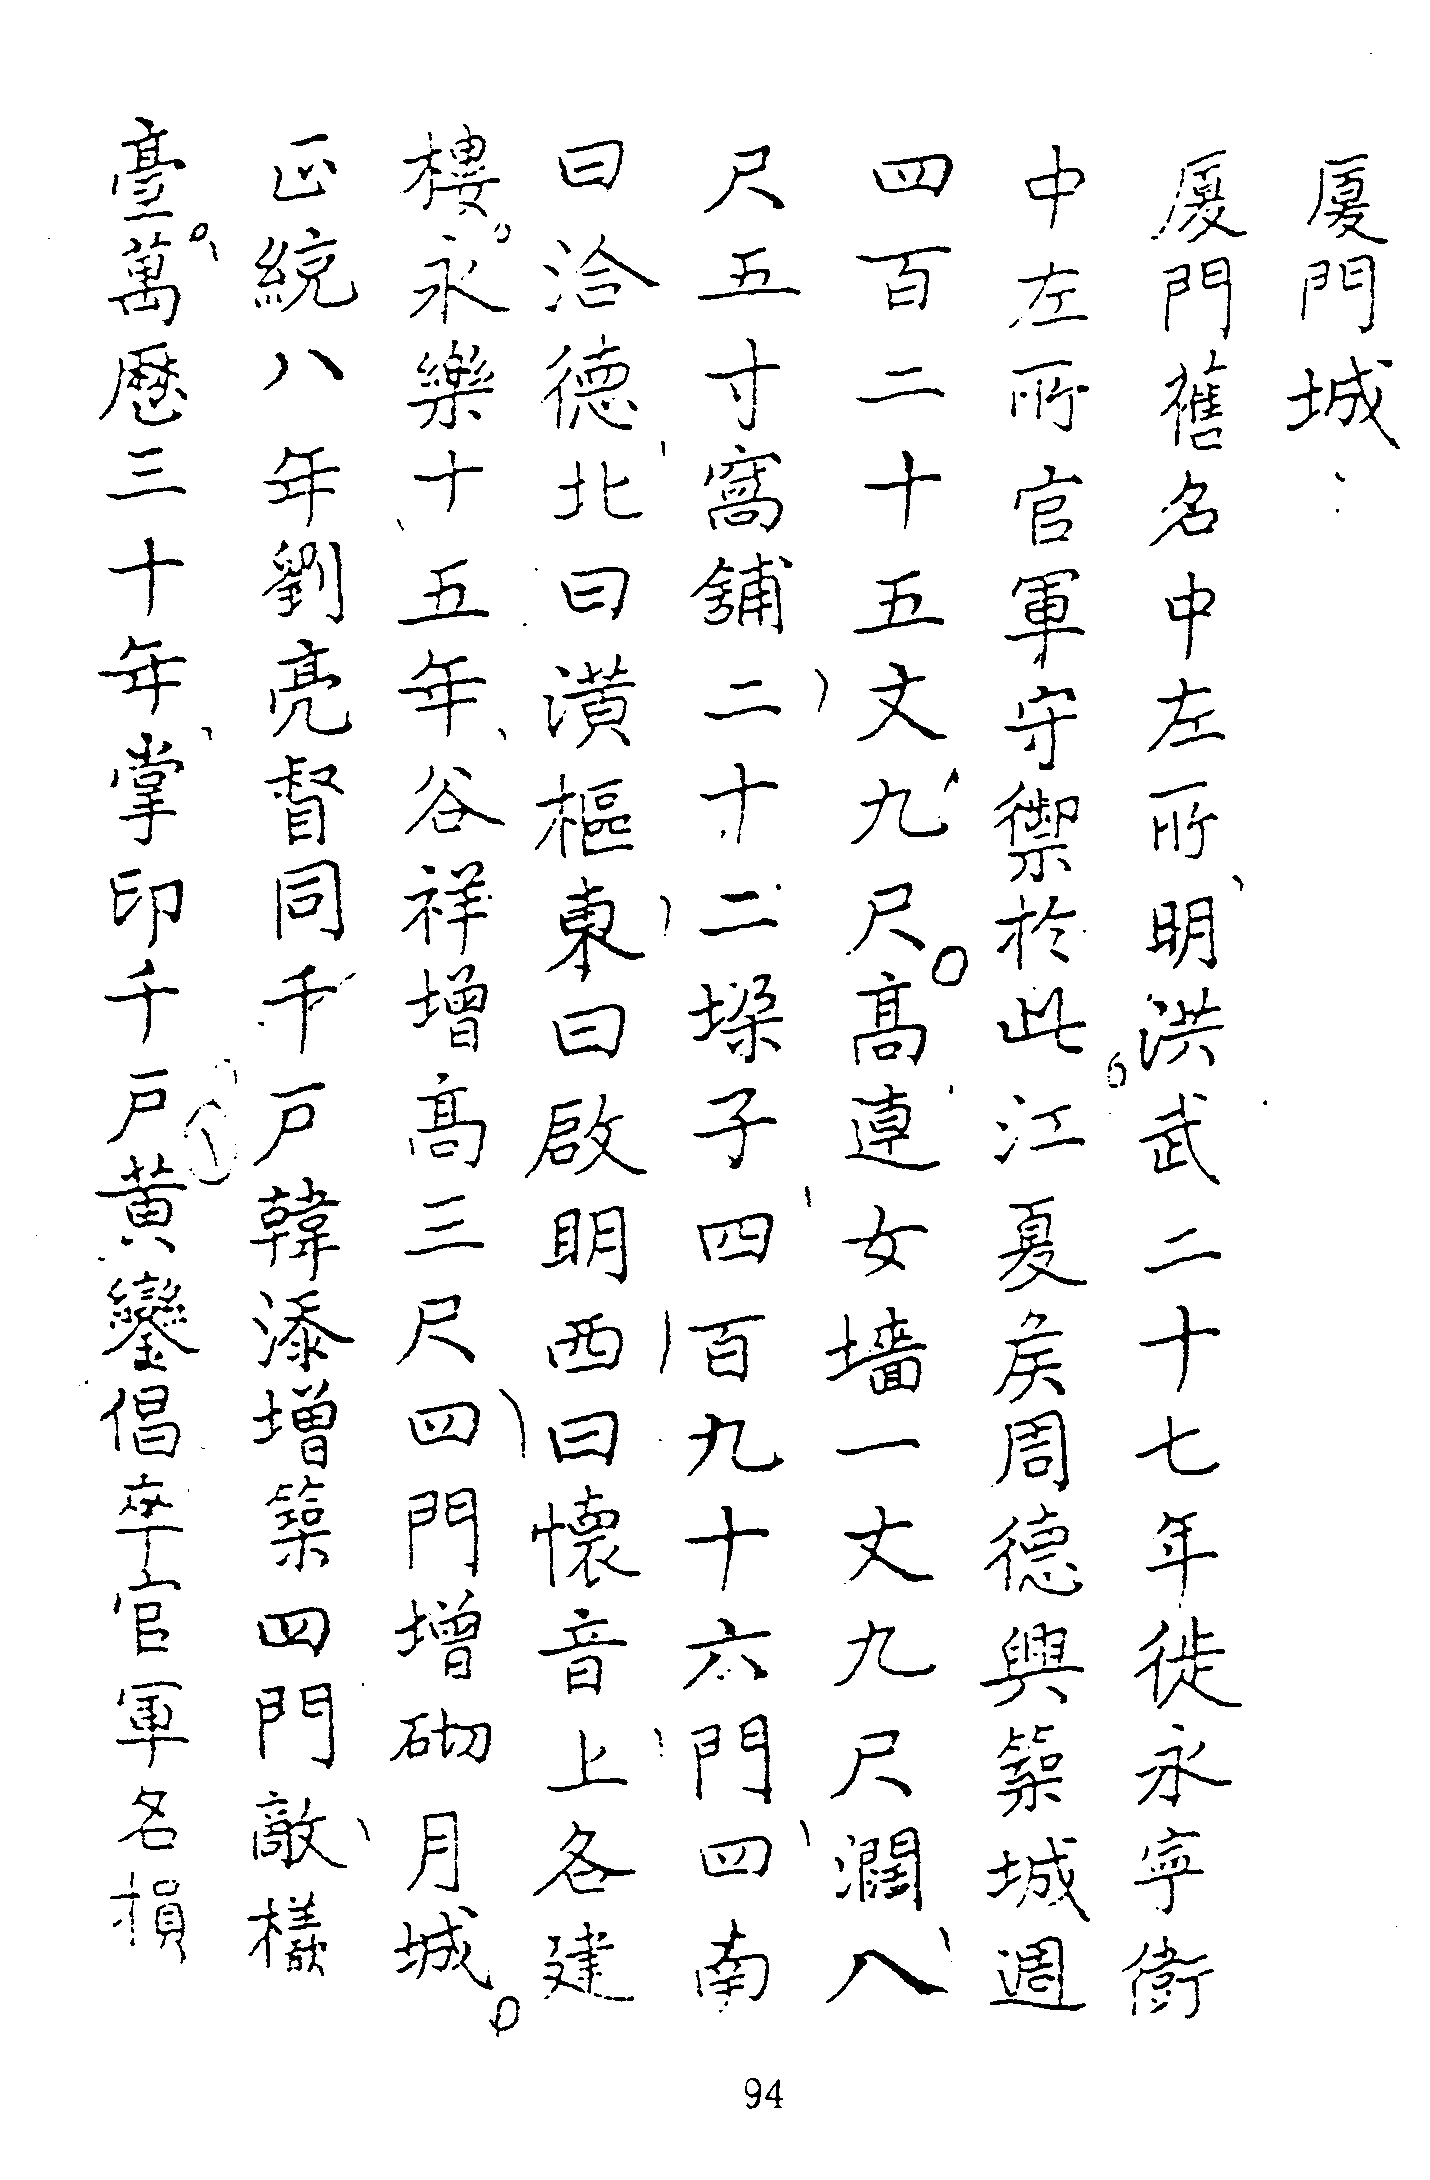 厦門城：
厦門舊名中左所、明洪武二十七年徙永寧衛
中左所官軍守禦於此。江夏矦周德興築城週
四百二十五丈、九尺。高連女墙一丈九尺濶、八
尺五寸窩舖二十二垜子四百九十六門四南
曰洽德、北曰潢樞東曰啟明西曰懷音上各建
樓。永樂十五年、谷祥增高三尺四門增砌月城。
正統八年劉亮督同千戶韓添增築四門敵樣
臺。萬歷三十年、掌印千戶黃鑾倡率官軍名損
94